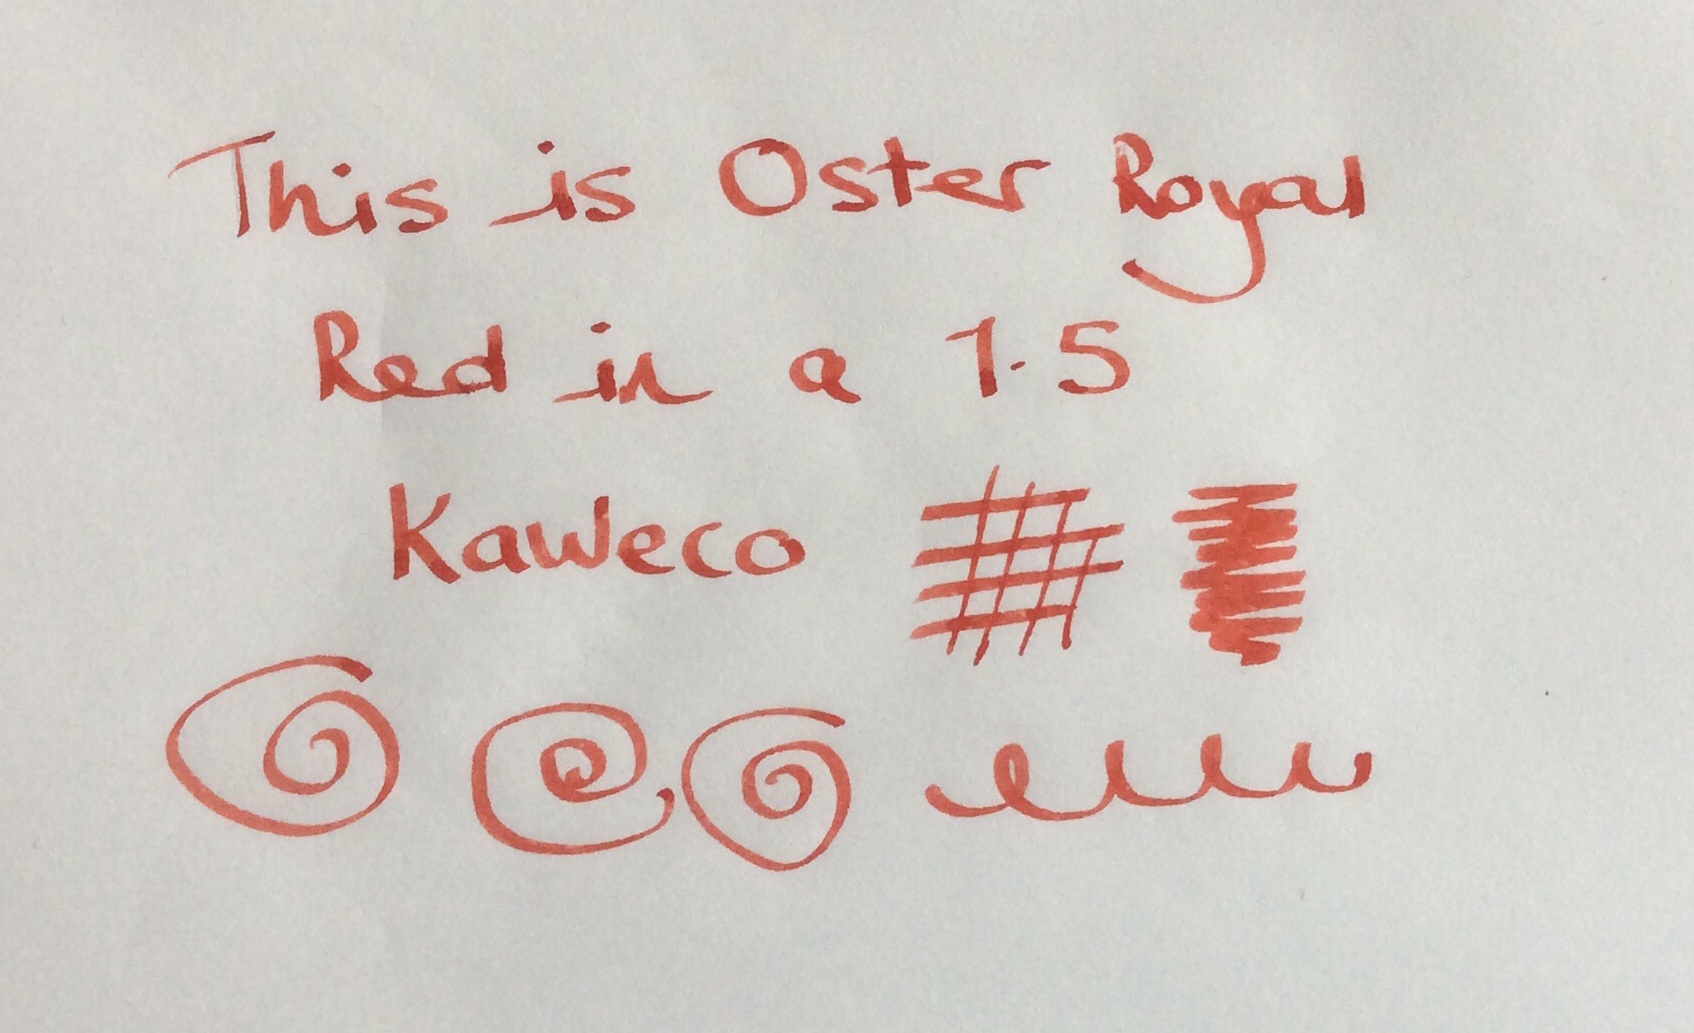 This is Oster Royal
Red in a 1.5
Kaweco